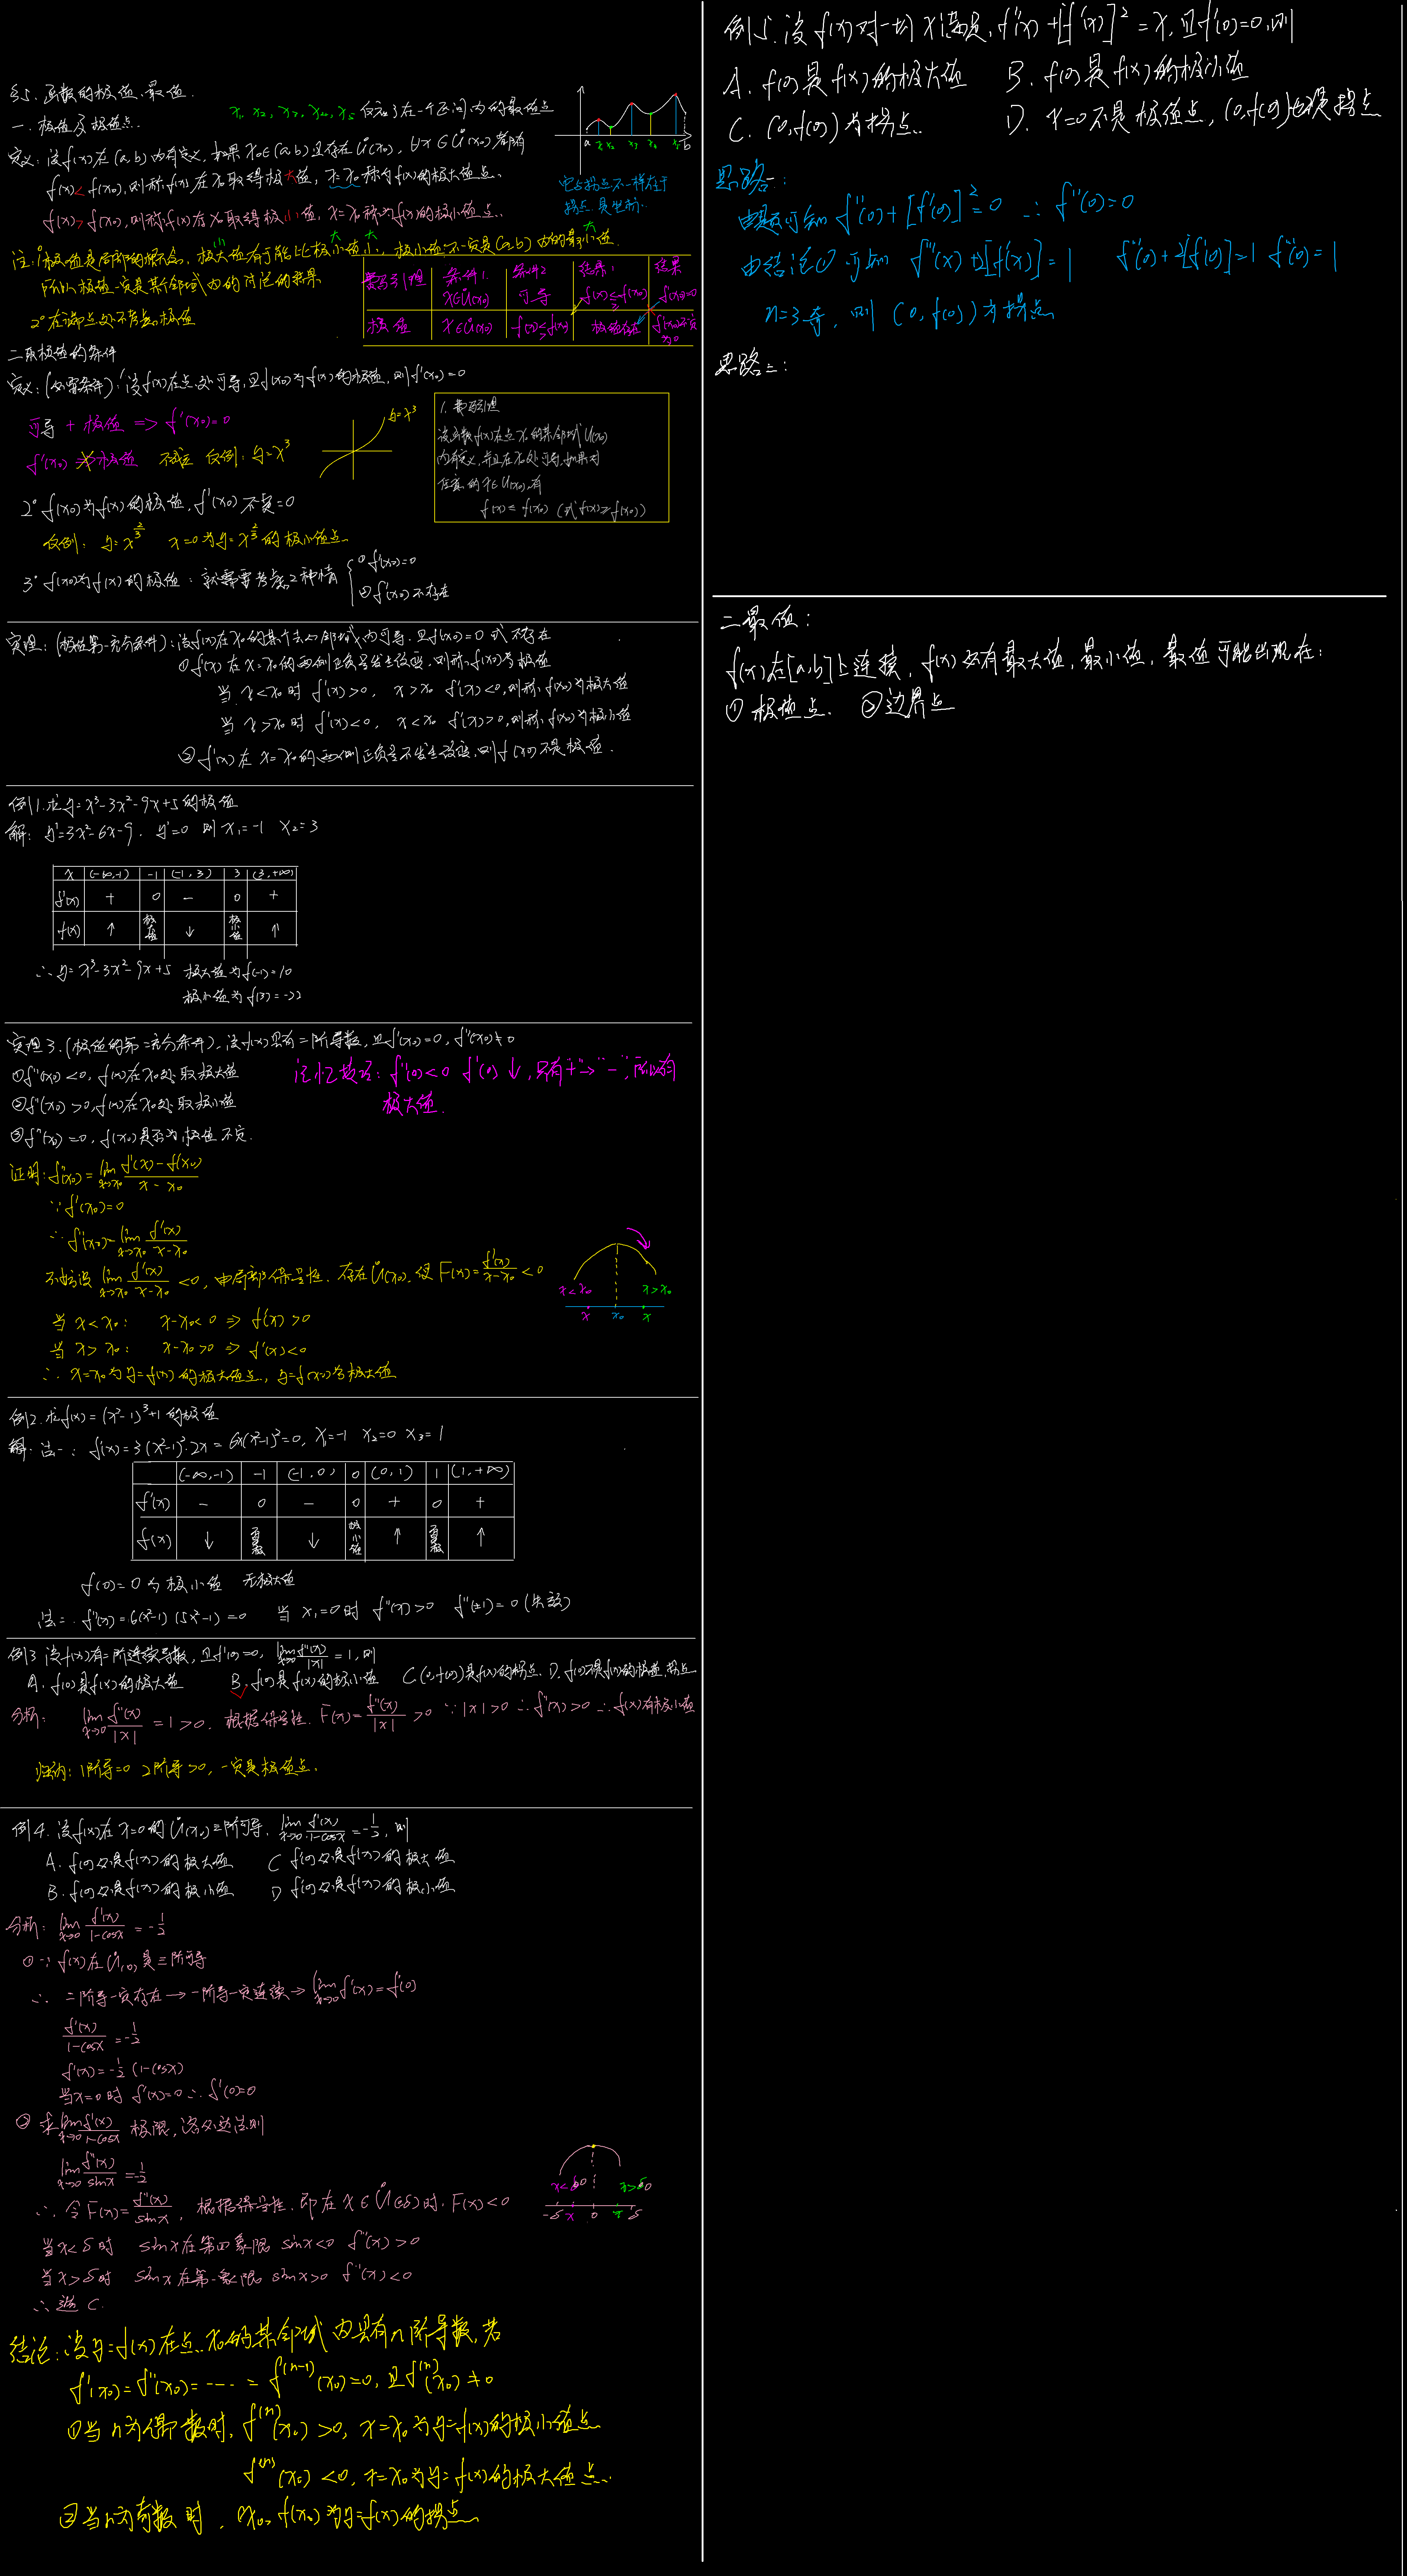 §5. 函数的极值.最值.
一. 极值及极值点.
x₁, x₂, x₃, x₄, x₅ 仅为了在一个区间内的最值点
定义: 设f(x)在(a,b)内有定义, 如果x₀∈(a,b)且存在Ů(x₀), ∀x∈Ů(x₀)都有
f(x)<f(x₀),则称f(x)在x₀取得极大值, x=x₀称为f(x)的极大值点.
f(x)>f(x₀),则称f(x)在x₀取得极小值, x=x₀称为f(x)的极小值点.
它与拐点不一样在于
拐点是坐标.
a x₁ x₂ x₃ x₄ x₅ b
注: 1°极值是局部的概念, 极大值有可能比极小值小, 极小值不一定是(a,b)内的最小值.
小 大 大 大
所以极值一定是某邻域内的讨论的结果
2°在端点处不考虑极值
费马引理 条件1 条件2 结果1 结果
x∈U(x₀) 可导 f(x)≤f(x₀) f'(x₀)=0
极值 x∈Ů(x₀) f(x)<f(x₀) 极值存在 f'(x₀)不定为0
二取极值的条件
定义: (必要条件): 1°设f(x)在点x₀处可导,且f(x₀)为f(x)的极值, 则f'(x₀)=0
可导 + 极值 => f'(x₀)=0
f'(x₀) ≠> 极值 不成立 反例: y=x³
y=x³
1. 费马引理
设函数f(x)在点x₀的某邻域U(x₀)
内有定义, 并且在x₀处可导, 如果对
任意的x∈U(x₀),有
f(x)≤f(x₀) (或f(x)≥f(x₀))
2° f(x₀)为f(x)的极值, f'(x₀)不一定=0
反例: y=x^{2/3} x=0为y=x^{2/3}的极小值点
3° f(x₀)为f(x)的极值: 就需要考虑2种情 ① f'(x₀)=0
② f'(x₀)不存在
定理: (极值第一充分条件): 设f(x)在x₀的某个去心邻域内可导, 且f'(x₀)=0 或 不存在
① f'(x)在x=x₀的两侧正负号发生改变, 则称f(x₀)为极值
当 x<x₀时 f'(x)>0, x>x₀ f'(x)<0,则称f(x₀)为极大值
当 x>x₀时 f'(x)<0, x<x₀ f'(x)>0,则称f(x₀)为极小值
② f'(x)在x=x₀的两侧正负号不发生改变,则f(x₀)不是极值.
例1.求y=x³-3x²-9x+5的极值
解: y'=3x²-6x-9. y'=0 则x₁=-1 x₂=3
x (-∞,-1) -1 (-1,3) 3 (3,+∞)
f'(x) + 0 - 0 +
f(x) ↑ 极大值 ↓ 极小值 ↑
∴y=x³-3x²-9x+5 极大值为f(-1)=10
极小值为f(3)=-22
定理3.(极值的第二充分条件). 设f(x)具有二阶导数, 且f'(x₀)=0, f''(x₀)≠0
①f''(x₀)<0, f(x)在x₀处取极大值
②f''(x₀)>0,f(x)在x₀处取极小值
③f''(x₀)=0, f(x₀)是否为极值不定.
记忆技巧: f''(0)<0 f'(0)↓, 只有"+"→"-", 所以有
极大值.
证明: f''(x₀)=lim_{x→x₀} (f'(x)-f'(x₀))/(x-x₀)
∵f'(x₀)=0
∴f''(x₀)=lim_{x→x₀} f'(x)/(x-x₀)
不妨设 lim_{x→x₀} f'(x)/(x-x₀) <0, 由局部保号性. 存在Ů(x₀), 使F(x)=f'(x)/(x-x₀)<0
当x<x₀: x-x₀<0 ⇒ f'(x)>0
当x>x₀: x-x₀>0 ⇒ f'(x)<0
∴ x=x₀为y=f(x)的极大值点, y=f(x₀)为极大值
x<x₀ x>x₀
x x₀ x
例2.求f(x)=(x²-1)³+1的极值
解: 法一: f'(x)=3(x²-1)²·2x=6x(x²-1)²=0, x₁=-1 x₂=0 x₃=1
(-∞,-1) -1 (-1,0) 0 (0,1) 1 (1,+∞)
f'(x) - 0 - 0 + 0 +
f(x) ↓ ↓ 极小值 ↑ ↑
f(0)=0为极小值 无极大值
法二: f''(x)=6(x²-1)(5x²-1)=0 当x₁=0时 f''(x)>0 f''(±1)=0(失效)
例3 设f(x)有二阶连续导数, 且f'(0)=0, lim_{x→0} f''(x)/|x|=1, 则
A. f(0)是f(x)的极大值 B. f(0)是f(x)的极小值 C.(0,f(0))是f(x)的拐点. D. f(0)不是f(x)的极值, 拐点
分析: lim_{x→0} f''(x)/|x| =1>0. 根据保号性. F(x)=f''(x)/|x|>0 ∵|x|>0 ∴f''(x)>0 ∴f(x)有极小值
归纳: 1阶导=0 2阶导>0, 一定是极值点.
例4. 设f(x)在x=0的Ů(x₀)二阶可导, lim_{x→0} f'(x)/(1-cosx)=-1/2, 则
A. f(0)必是f(x)的极大值 C f'(0)必是f'(x)的极大值
B. f(0)必是f(x)的极小值 D f'(0)必是f'(x)的极小值
分析: lim_{x→0} f'(x)/(1-cosx) = -1/2
①∵f(x)在Ů(0)是二阶可导
∴ 二阶导一定存在→一阶导一定连续→lim_{x→0}f'(x)=f'(0)
f'(x)/(1-cosx) = -1/2
f'(x)=-1/2(1-cosx)
当x=0时 f'(x)=0 ∴f'(0)=0
② 求lim_{x→0} f'(x)/(1-cosx) 极限, 洛必达法则
lim_{x→0} f''(x)/sinx =-1/2
∴ 令F(x)=f''(x)/sinx, 根据保号性. 即在x∈Ů(0,δ)时, F(x)<0
当x<δ时 sinx在第四象限 sinx<0 f''(x)>0
当x>δ时 sinx在第一象限 sinx>0 f''(x)<0
∴选C.
-δ x 0 x δ
结论: 设y=f(x)在点x₀的某邻域内具有n阶导数, 若
f'(x₀)=f''(x₀)=----=f^{(n-1)}(x₀)=0, 且f^{(n)}(x₀)≠0
①当n为偶数时, f^{(n)}(x₀)>0, x=x₀为y=f(x)的极小值点
f^{(n)}(x₀)<0, x=x₀为y=f(x)的极大值点.
②当n为奇数时, (x₀,f(x₀)为y=f(x)的拐点
例5. 设f(x)对一切x满足, f''(x)+[f'(x)]²=x, 且f'(0)=0,则
A. f(0)是f(x)的极大值 B. f(0)是f(x)的极小值
C. (0,f(0))为拐点. D. x=0不是极值点, (0,f(0))也不是拐点
思路一:
由题可知 f''(0)+[f'(0)]²=0 ∴f''(0)=0
由结论① 可知 f'''(x)+2[f'(x)]=1 f'''(0)+2[f'(0)]=1 f'''(0)=1
n=3奇, 则(0,f(0))为拐点
思路二:
二最值:
f(x)在[a,b]上连接, f(x)必有最大值, 最小值, 最值可能出现在:
① 极值点. ②边界点